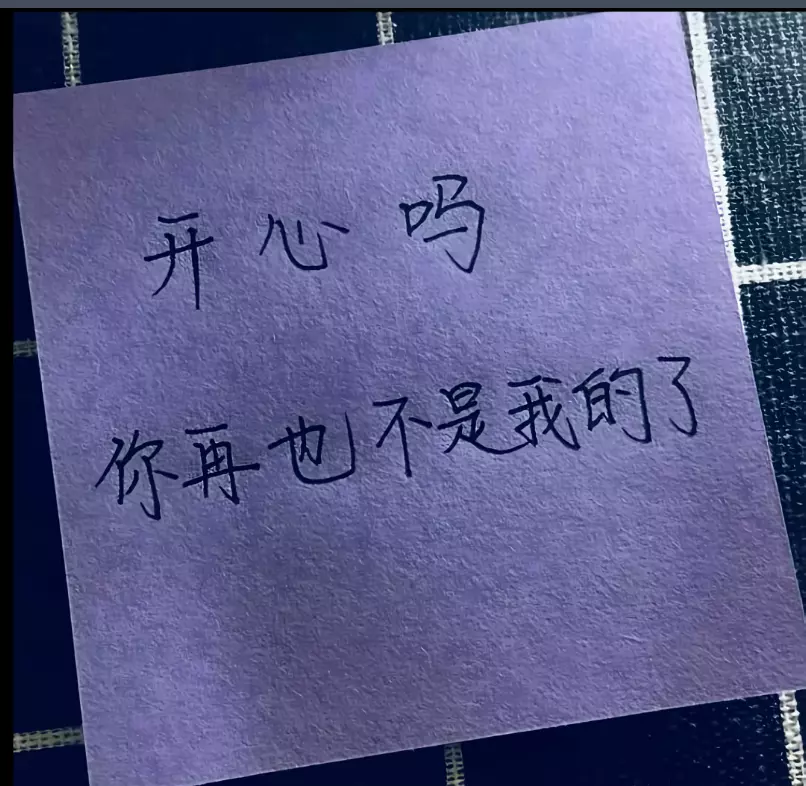 开心吗
你再也不是我的了